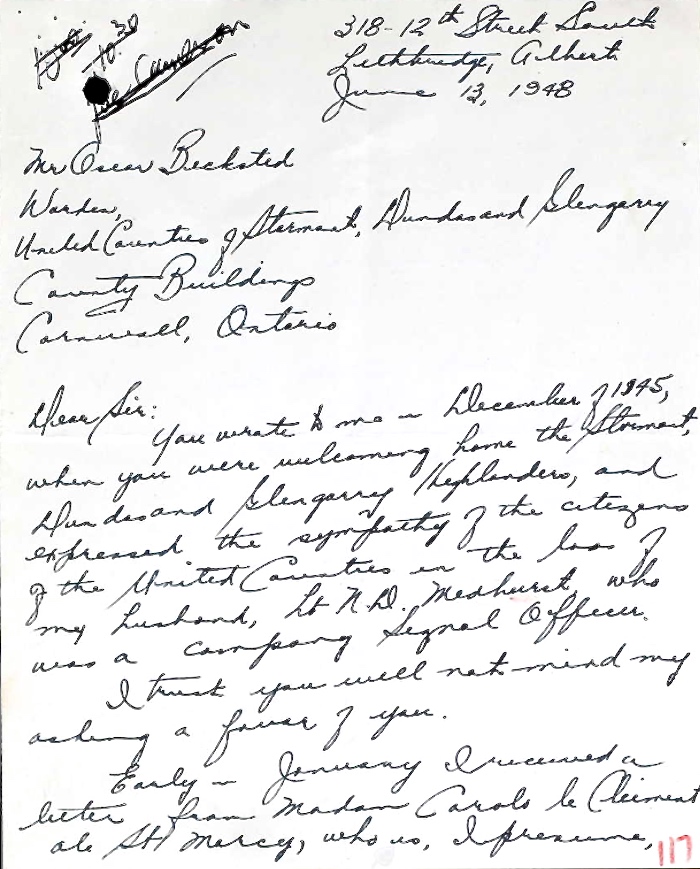 10.30
318-12th Street South
Lethbridge, Alberta
June 13, 1948
Mr Oscar Becksted
Warden,
United Counties of Stormont, Dundas and Glengarry
County Buildings
Cornwall, Ontario
Dear Sir:
You wrote to me in December of 1945,
when you were welcoming home the Stormont,
Dundas and Glengarry Highlanders, and
expressed the sympathy of the citizens
of the United Counties in the loss of
my husband, Lt N.D. Medhurst, who
was a company Signal Officer.
I trust you will not mind my
asking a favor of you.
Early in January I received a
letter from Madam Carolo le Cleiment
de St Marcy, who is, I presume,
117